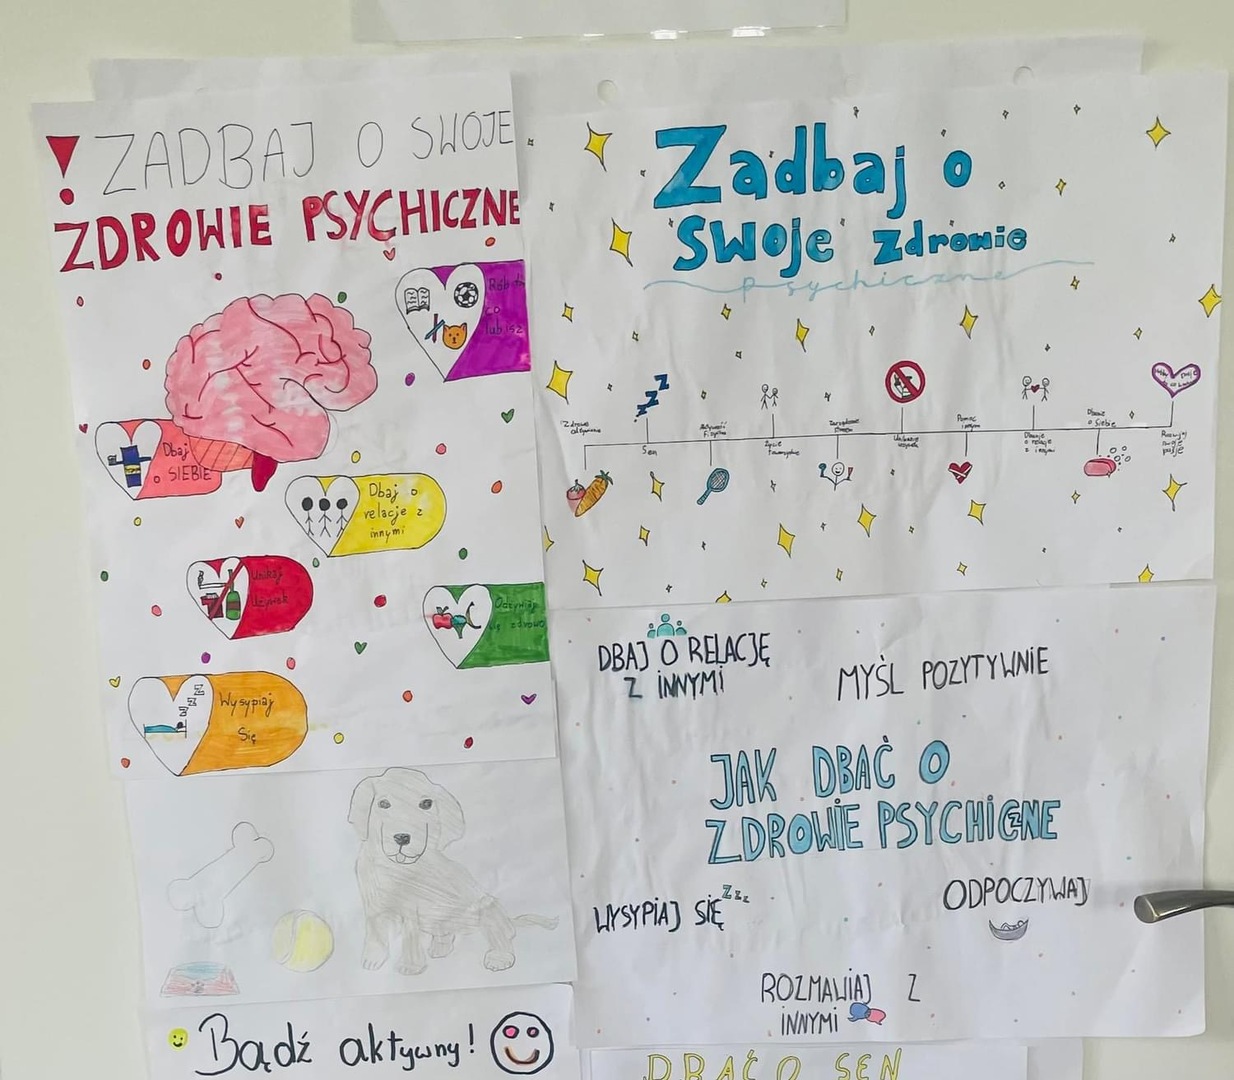 ! ZADBAJ O SWOJE
ZDROWIE PSYCHICZNE
Rób to
co
lubisz
Dbaj
o SIEBIE
Dbaj o
relacje z
innymi
Unikaj
Używek
Odżywiaj
się zdrowo
Wysypiaj
Się
Bądź aktywny!
Zadbaj o
swoje zdrowie
psychiczne
zzz
Zdrowe
odżywianie
Sen
Aktywność
Fizyczna
Życie
Towarzyskie
Pomoc
innym
Dbanie
o relacje
z innymi
Dbanie
o siebie
Rozwijaj
swoje
pasje
DBAJ O RELACJĘ
Z INNYMI
MYŚL POZYTYWNIE
JAK DBAĆ O
ZDROWIE PSYCHICZNE
WYSYPIAJ SIĘ zzz
ODPOCZYWAJ
ROZMAWIAJ Z
INNYMI
DBAĆ O SEN